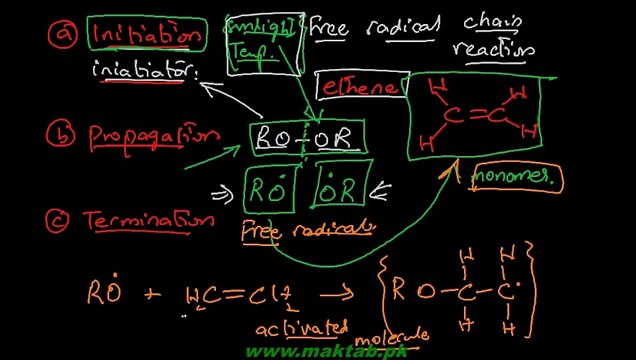 (a) Initiation
iniatiator:
sunlight
Temp.
Free radical chain
reaction
ethene
H H
C=C
H H
monomer.
(b) Propagation
RO-OR
RȮ ȮR
Free radicals
(c) Termination
RȮ + H₂C=CH₂ → {R O-C-Ċ}
H H
H H
activated molecule
www.maktab.pk